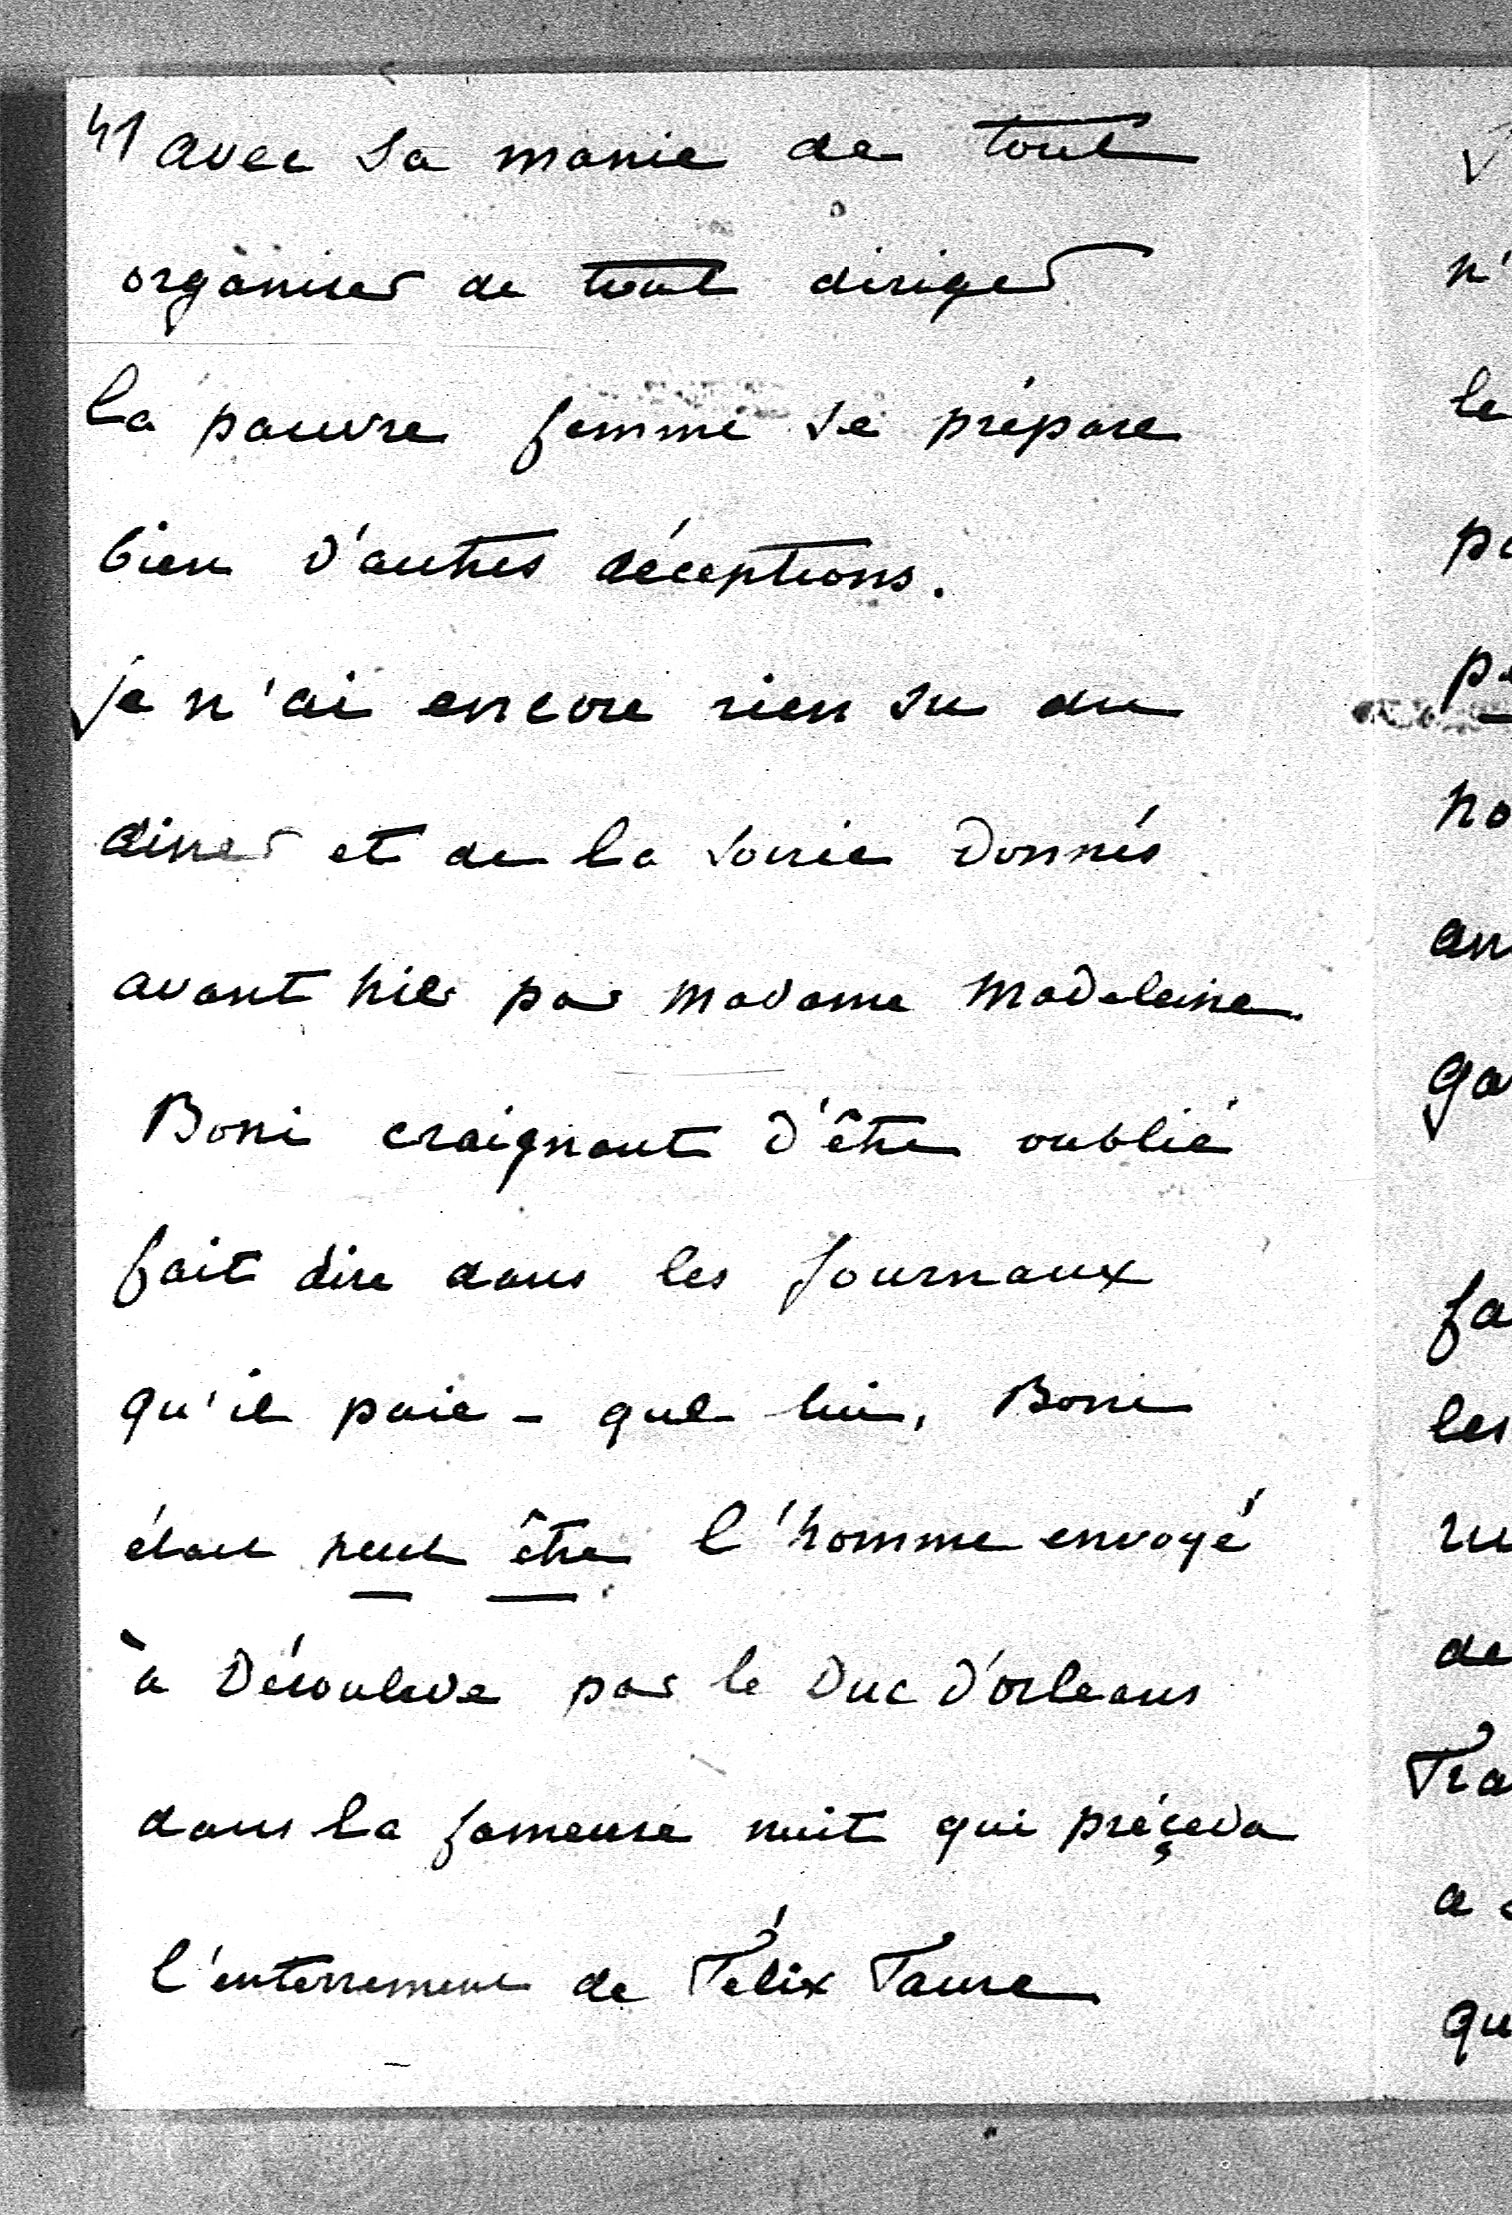 41 avec sa manie de tout
organiser de tout diriger
la pauvre femme se prépare
bien d'autres déceptions.
je n'ai encore rien su du
diner et de la soirée donnés
avant hier par Madame Madeleine.
Boni craignant d'être oublié
fait dire dans les journaux
qu'il paie - que lui, Boni
était peut être l'homme envoyé
à Déroulede par le Duc d'orleans
dans la fameuse nuit qui précéda
l'enterrement de Félix Faure
n'
le
po
pe
no
an
ga
fa
les
ru
de
Fra
a
qu